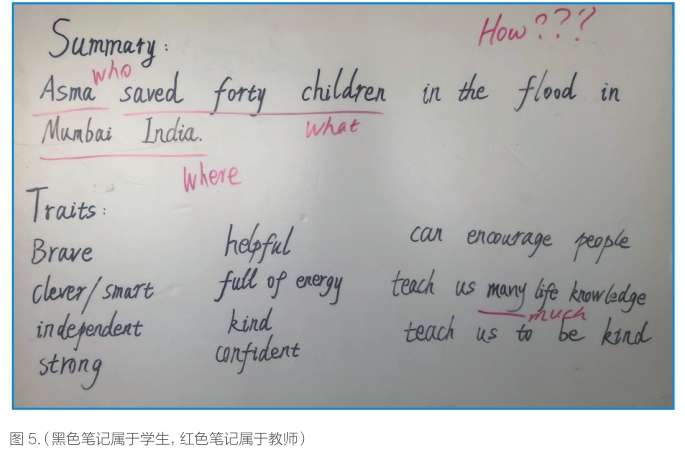 Summary:
How???
who
Asma saved forty children in the flood in
Mumbai India.
what
where
Traits:
Brave
clever/smart
independent
strong
helpful
full of energy
kind
confident
can encourage people
teach us many life knowledge
much
teach us to be kind
图 5.(黑色笔记属于学生, 红色笔记属于教师)